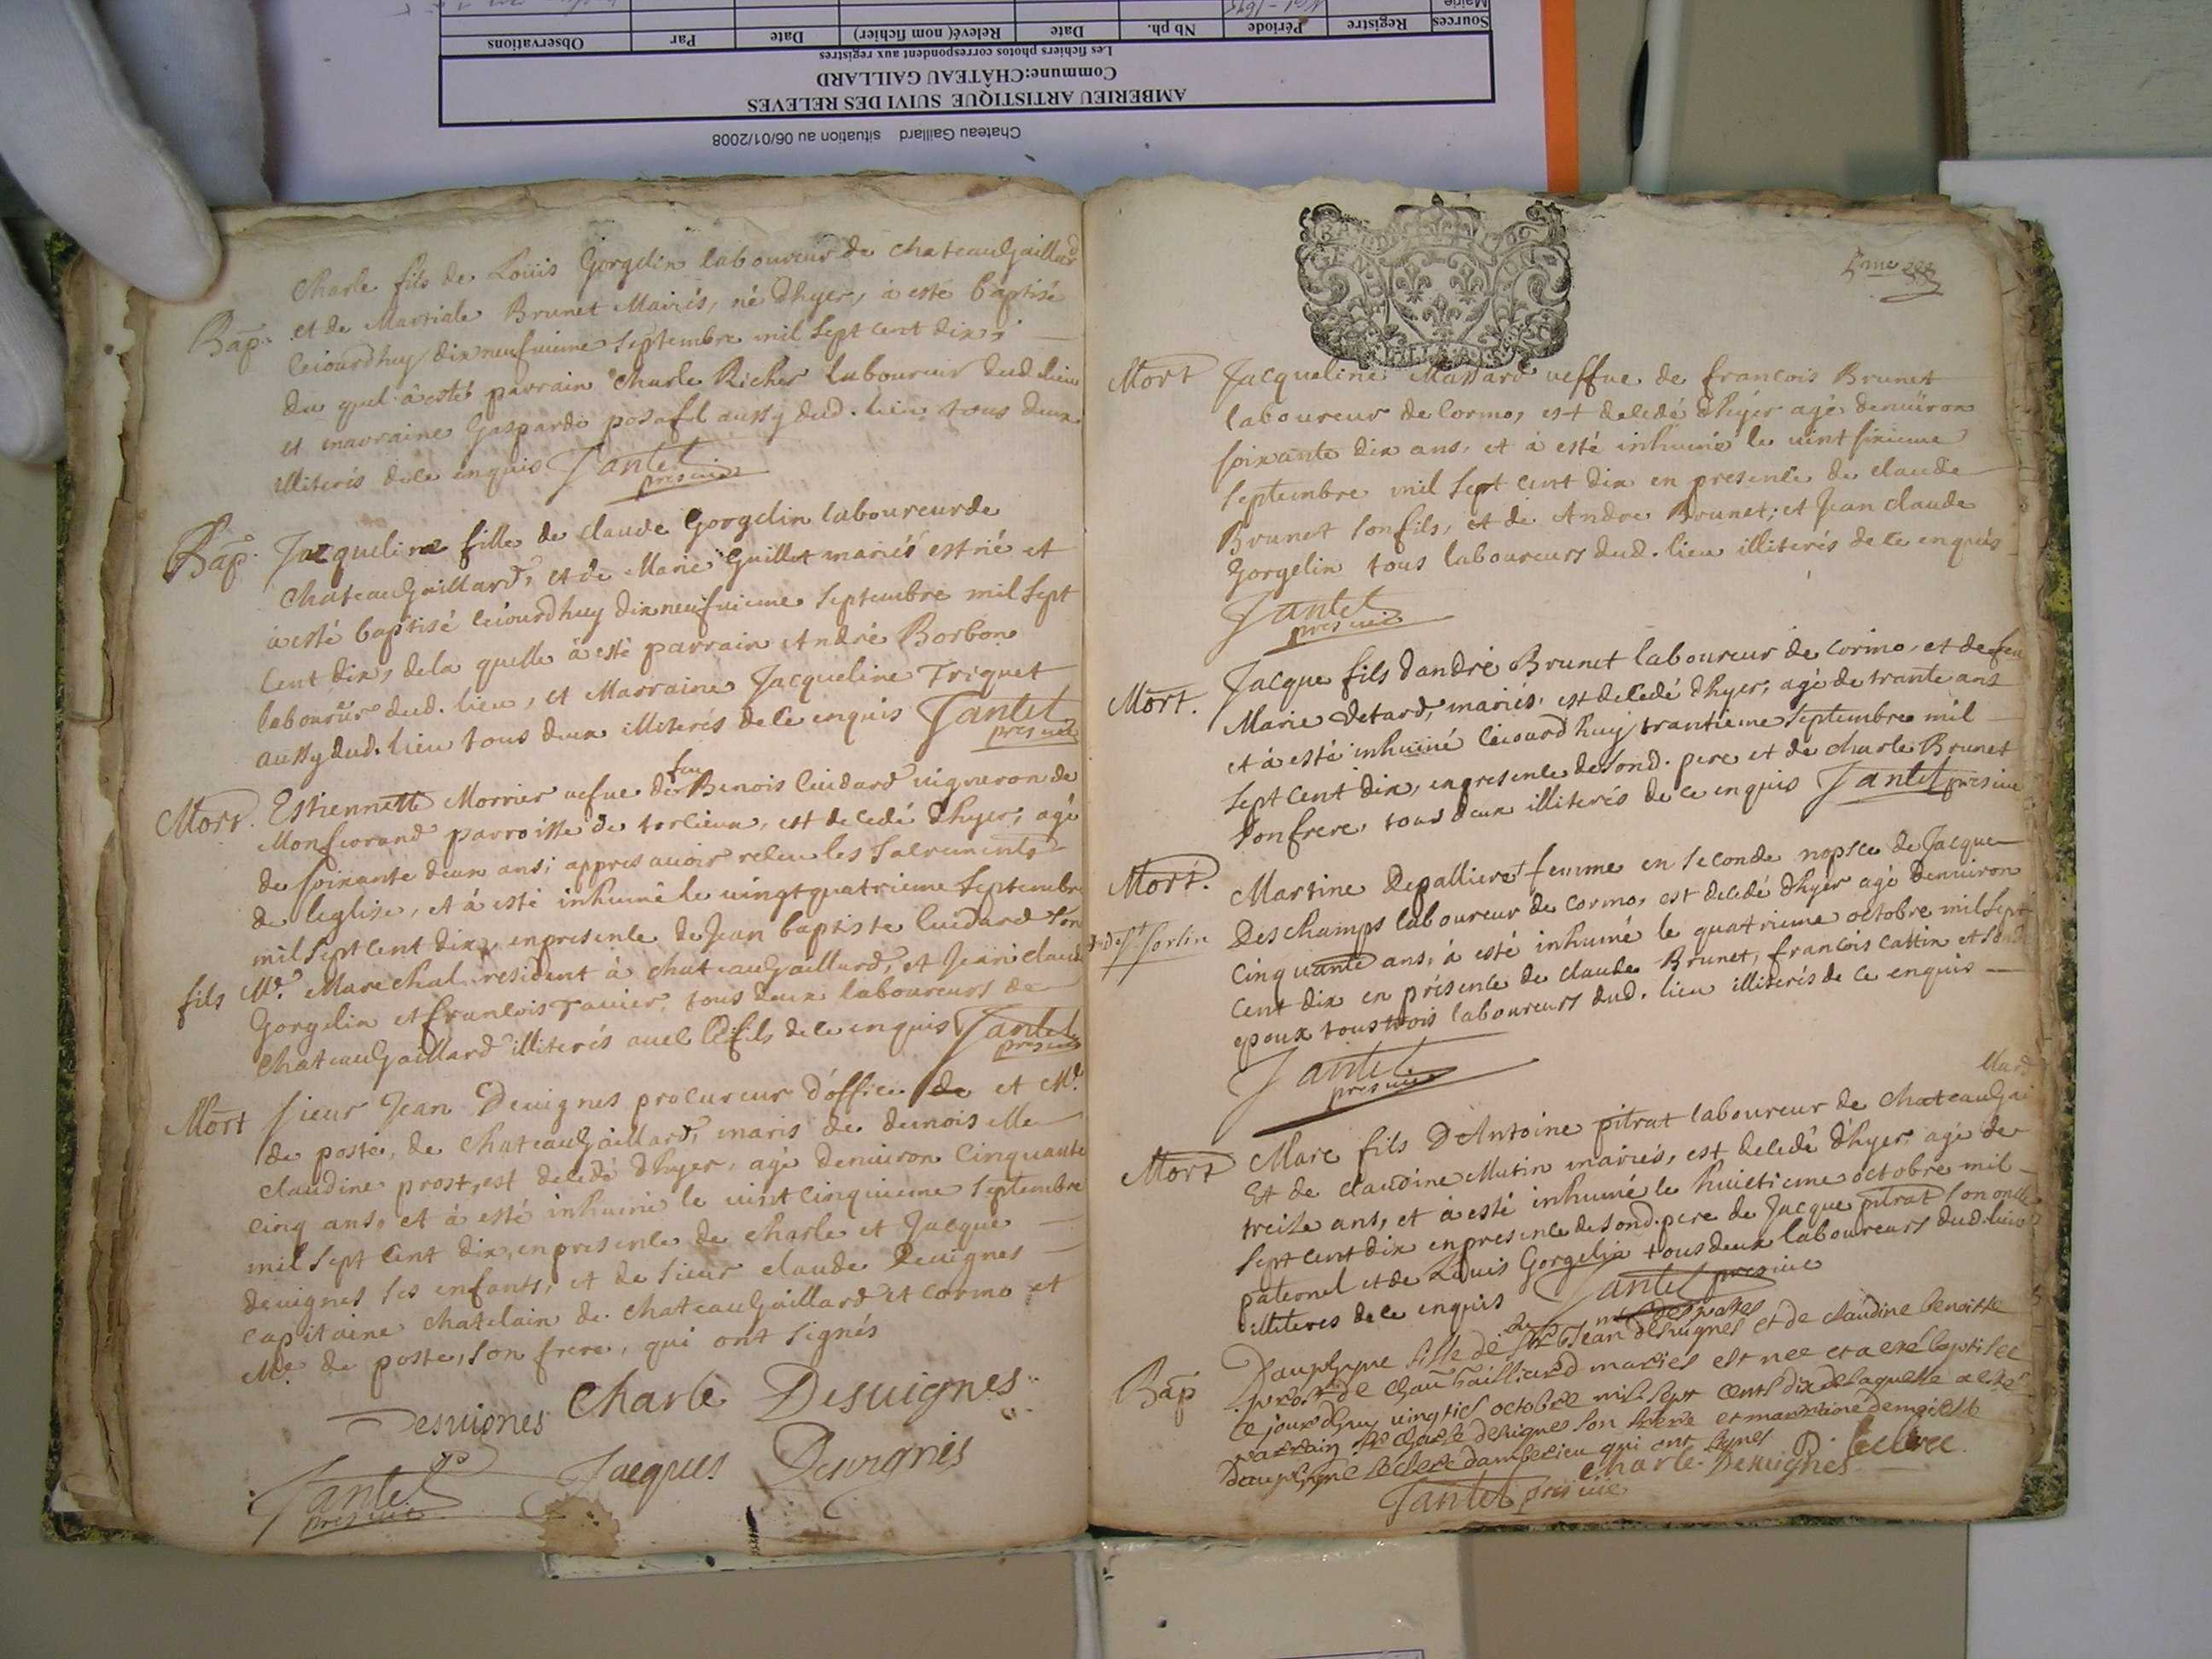 Chateau Gaillard situation au 06/01/2008
AMBERIEU ARTISTIQUE SUIVI DES RELEVES
Commune:CHÂTEAU GAILLARD
Les fichiers photos correspondent aux registres
Sources Registre Période Nb ph. Date Relevé( nom fichier) Date Par Observations
Mairie
Charle fils de Loüis Gorgelin laboureur de chateauGaillard
Bap. et de Marriale Brunet Mairiés, né dhyer, à esté baptisé
ceiourdhuy dixneufuieme Septembre mil sept cent dix,
du quel à esté parrain Charle Richer laboureur dud. lieu
et marraine Gasparde posafol aussy dud. lieu tous deux
illiterés de ce enquis Jantet
pres uic
Bap. Jacqueline fille de claude Gorgelin laboureur de
chateauGaillard, et de Marie Guillot mariés est né et
à esté baptisé ceiourdhuy dixneufuieme Septembre mil sept
cent dix, dela quelle à esté parrain André Borbon
laboureur dud. lieu, et Marraine Jacqueline Triquet
aussy dud. lieu tous deux illiterés de ce enquis Jantet
pres uic
feu
Mort. Estiennette Morrier uefue de Benois Cuidard uigneron de
Monferrand parroisse de torcieux, est decedé dhyer, agé
de soixante deux ans, appres auoir receu les Sacrements
de leglise, et à esté inhumé le uingtquatrieme Septembre
mil sept cent dix, en presence de Jean baptiste Cuidard son
fils Me. Marechal resident à chateauGaillard, et Jean claude
Gorgelin et francois tauier, tous deux laboureurs de
chateauGaillard illiterés auec led. fils de ce enquis Jantet
pres uic
Mort Sieur Jean Deuignes procureur d'office de et Me.
de poste, de chateauGaillard, maris de demoiselle
claudine prost, est decedé dhyer, agé denuiron cinquante
cinq ans, et à esté inhumé le uintcinquieme Septembre
mil sept cent dix, en presence de charle et Jacque
deuignes ses enfants, et de Sieur claude Deuignes
capitaine chatelain de chateauGaillard et cormo et
Me. de poste, son frere, qui ont signés
Desuignes Charle Desuignes
Jantet Jacques Deuignes
pres uic
Jacqueline Massard ueffue de francois Brunet
Mort
laboureur de Cormo, est decedé dhyer agé denuiron
soixante dix ans, et à esté inhumé le uintsixieme
Septembre mil sept cent dix en presence de claude
Brunet son fils, et de Andre Brunet, et Jean claude
Gorgelin tous laboureurs dud. lieu illiterés de ce enquis
Jantet
pres uic
Mort. Jacque fils dandré Brunet laboureur de cormo, et de feu
Marie Detard, mariés, est decedé dhyer, agé de trante ans
et à esté inhumé ceiourdhuy trantieme Septembre mil
sept cent dix, en presence de sond. pere et de charle Brunet
son frere, tous deux illiterés de ce enquis Jantet pres uic
Mort. Martine Depalliere femme en seconde nopsce de Jacque
Deschamps laboureur de cormo, est decedé dhyer agé denuiron
de St Sorlin
cinquante ans, à esté inhumé le quatrieme octobre mil sept
cent dix en présence de claude Brunet, francois cattin et sond.
epoux tous trois laboureurs dud. lieu illiterés de ce enquis
Jantet
pres uic
llard
Mort Marc fils D'Antoine pitrat laboureur de chateauGai
Et de claudine Mutin mariés, est decedé dhyer agé de
treize ans, et à esté inhumé le huictieme octobre mil
sept cent dix en presence de sond. pere de Jacque pitrat son oncle
paternel et de Louis Gorgelin tous deux laboureurs dud. lieu
illiteres de ce enquis Jantet pres uic
Bap Dauphyne fille de Jean desuignes et de claudine benoitte
prost de chau Gailliard mariés est nee et a esté baptisee
ce jourdhuy uingties octobre mil sept cents dix de laquelle a esté
parrain sr charle desuignes son frere et marraine demoiselle
Dauphyne leclerc damberieu qui ont signes D. leclerc
charle Desuignes
Jantet pres uic